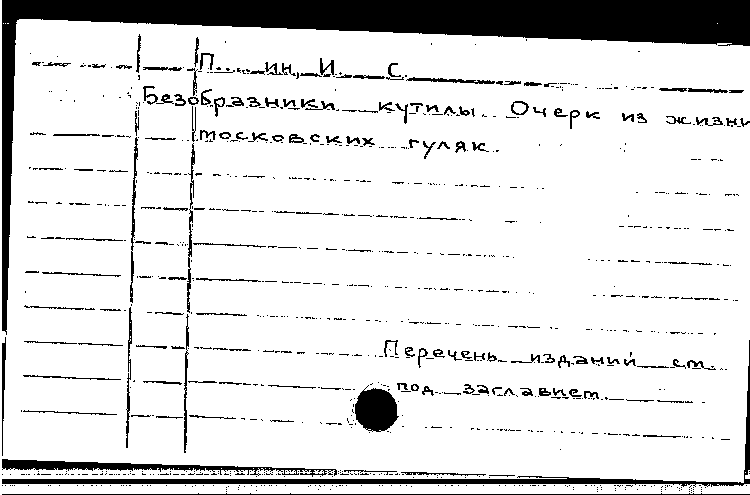 П.....ин, И. С.
Безобразники кутилы. Очерк из жизни
московских гуляк.
Перечень изданий см.
под заглавием.